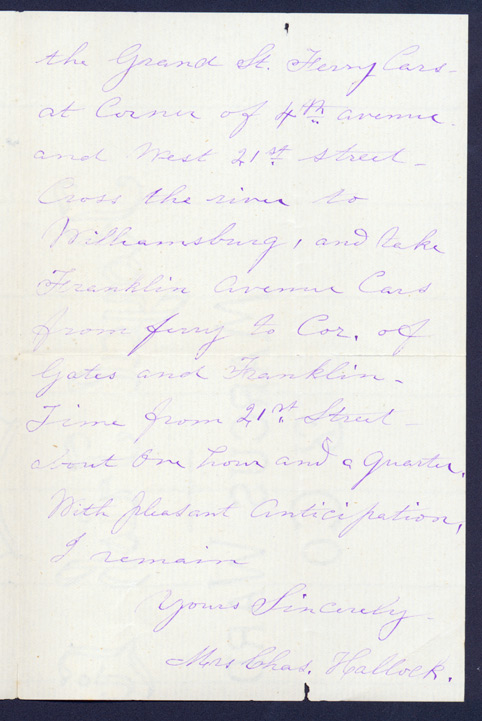 the Grand St. Ferry Cars -
at Corner of 4th avenue
and West 21st street -
Cross the river to
Williamsburg, and take
Franklin Avenue Cars
from ferry to Cor. of
Gates and Franklin -
Time from 21st Street -
about One hour and a quarter.
With pleasant anticipation,
I remain
Yours Sincerely -
Mrs Chas. Hallock.